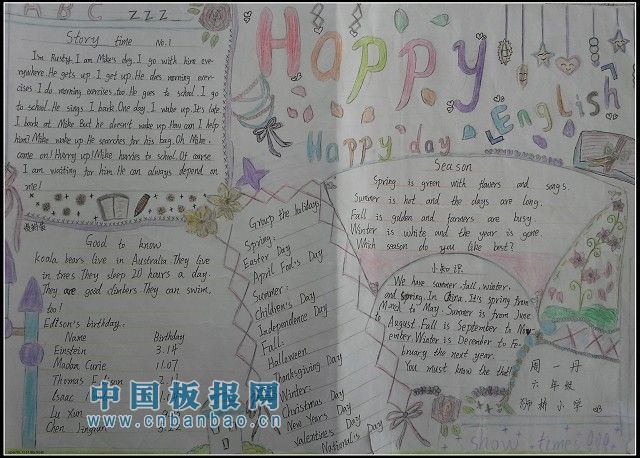 A B C
ZZZ
Story time No.1
I'm Rusty. I am Mike's dog. I go with him eve-
rywhere. He gets up. I get up. He does morning exer-
cises. I do morning exercises, too. He goes to school. I go
to school. He sings. I bark. One day, I wake up. It's late.
I bark at Mike. But he doesn't wake up. How can I help
him? Mike wake up. He searches for his bag. Oh Mike,
came on! Hurry up! Mike hurries to school. Of course
I am waiting for him. He can always depend on
me!
Happy English
Happy day
Good to know
koala bears live in Australia. They live
in trees. They sleep 20 hours a day.
They are good climbers. They can swim,
too!
Edison's birthday:
Name Birthday
Einstein 3.14
Madam Curie 11.07
Thomas Edison 2.11
Isaac
Lu Xun
Chen Jingrun 5.22
Group the holidays
Spring:
Easter Day
April Fool's Day
Summer:
Children's Day
Independence Day
Fall:
Halloween
Thanksgiving Day
Winter:
Christmas Day
New Year's Day
Valentine's Day
National's Day
Season
Spring is green with flowers and songs.
Summer is hot and the days are long.
Fall is golden and farmers are busy.
Winter is white and the year is gone.
Which season do you like best?
小知识
We have summer, fall, winter,
and spring. In China. It's spring from
March to May. Summer is from June
to August. Fall is September to Nov-
ember. Winter is December to Fe-
bruary the next year.
You must know the that!
周一丹
六年级
柳林小学
show time
中国板报网
www.cnbanbao.cn